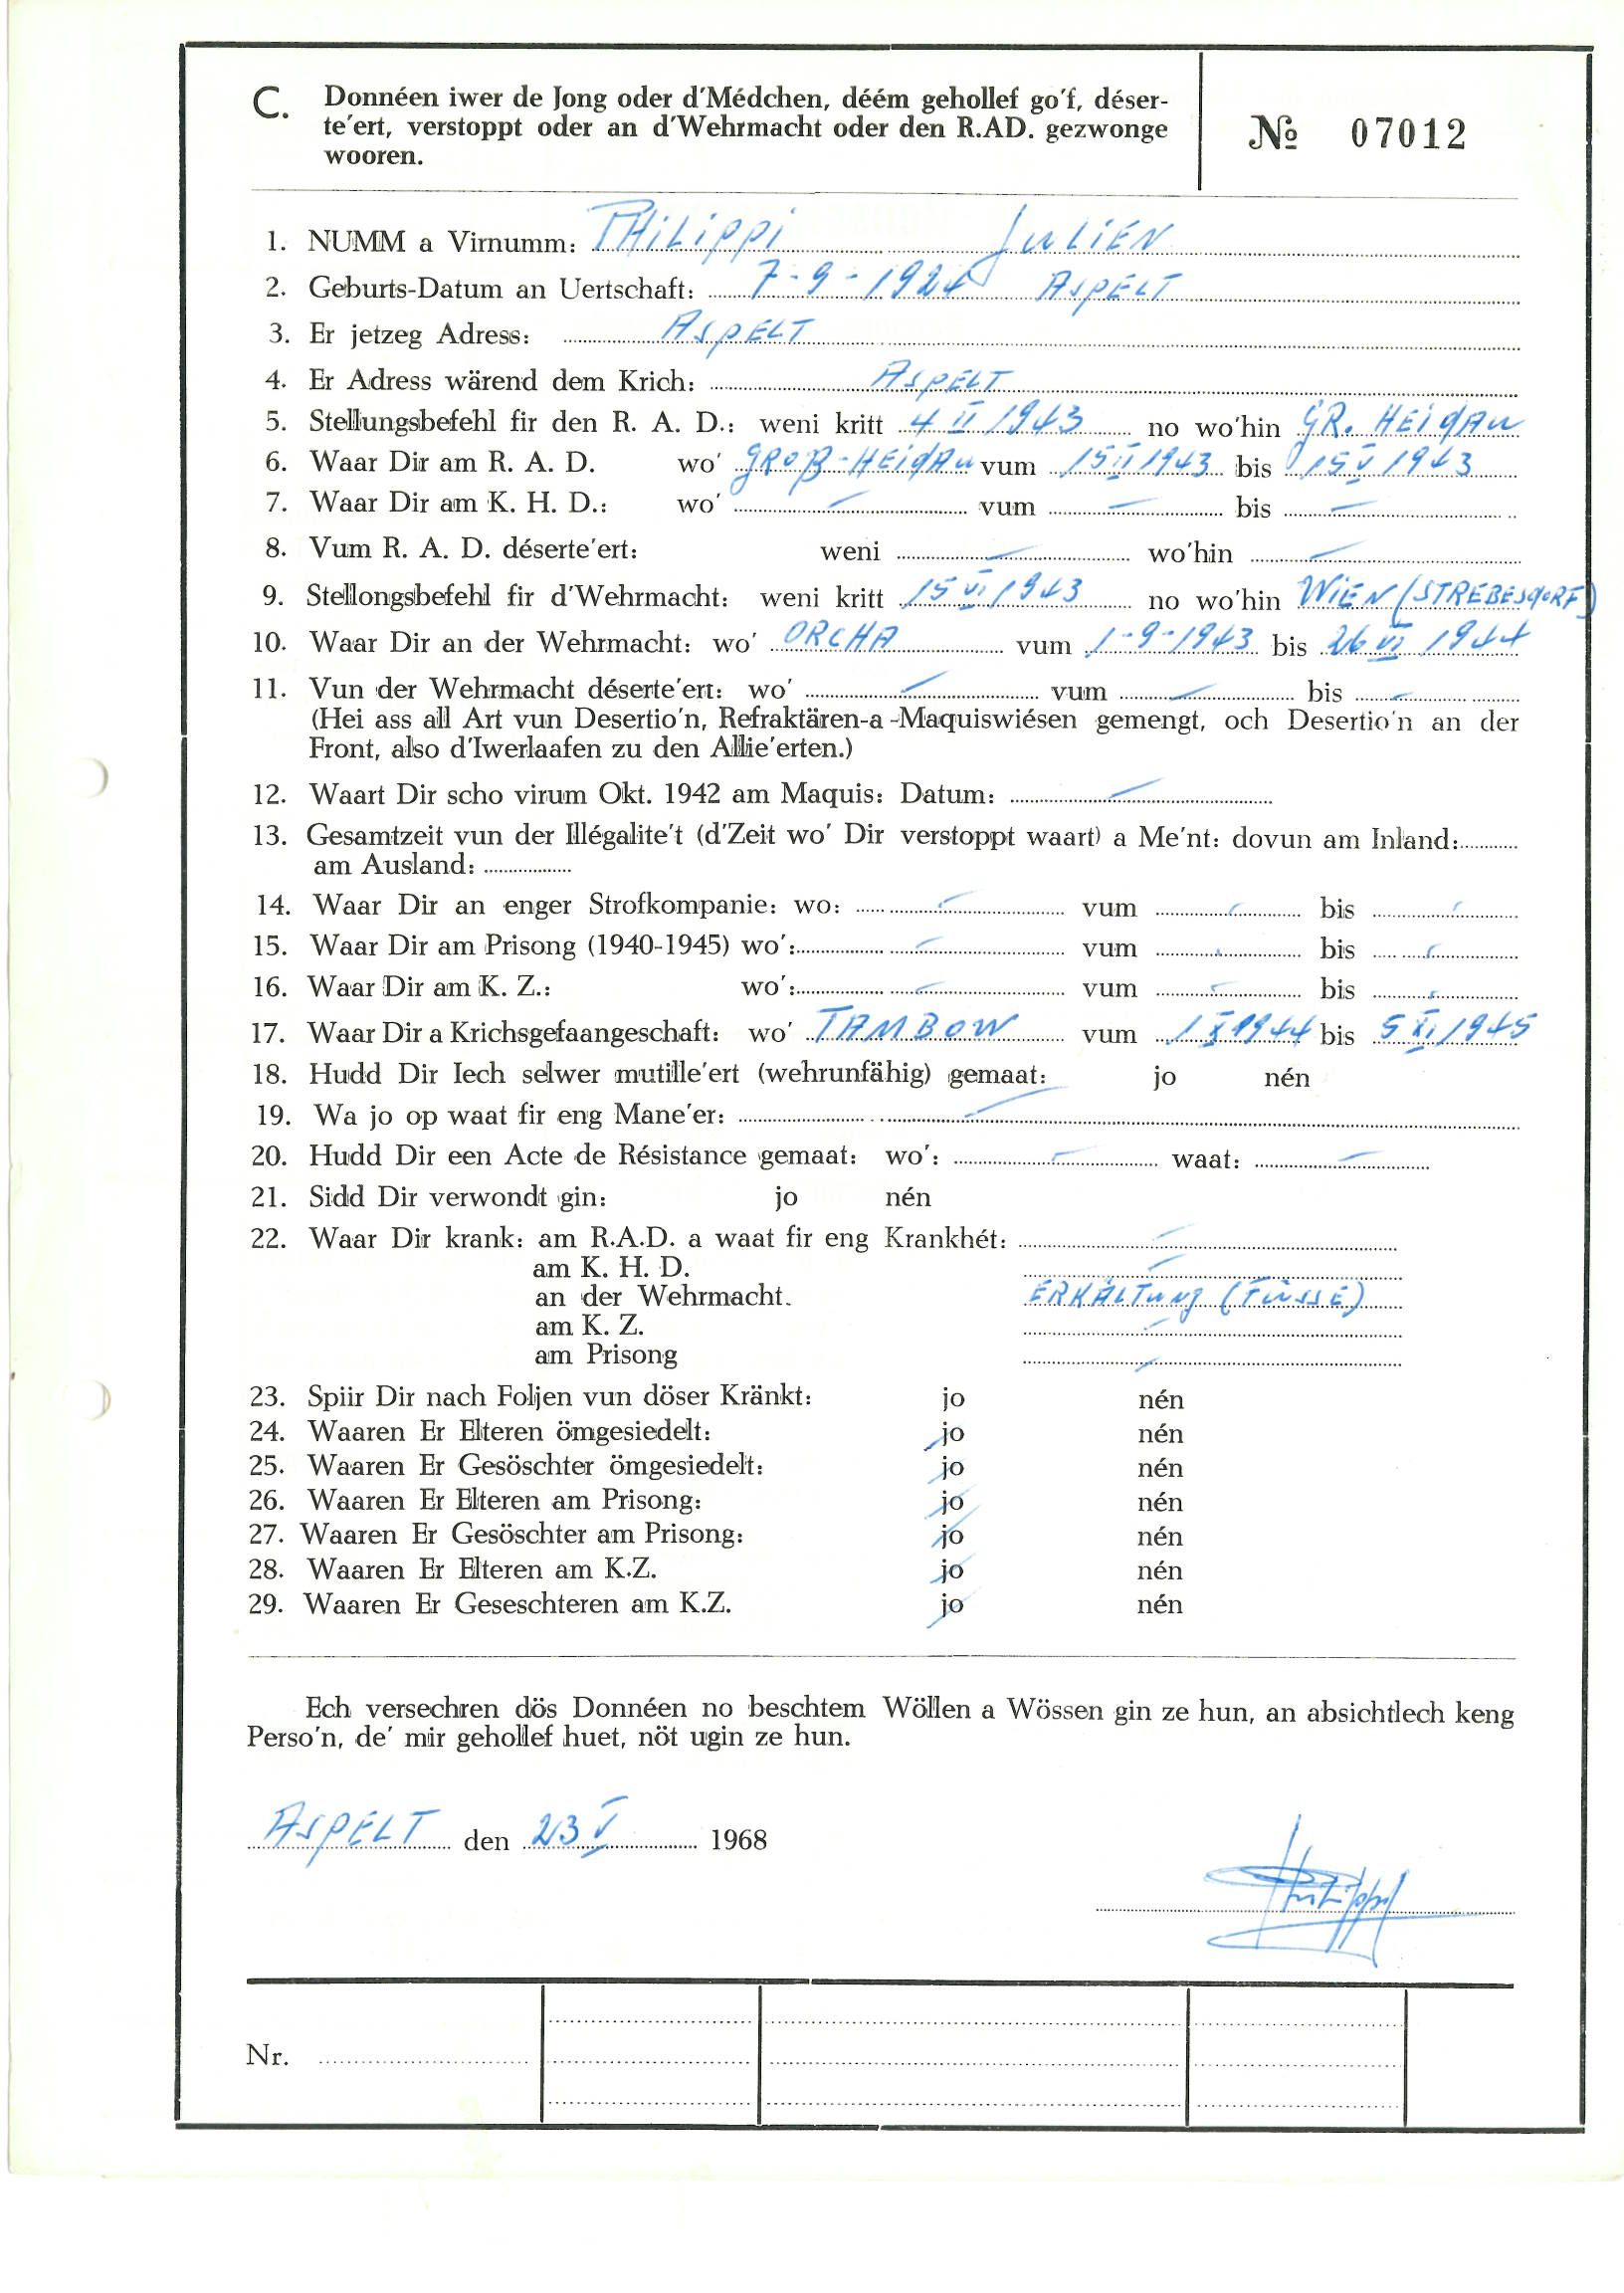 C. Donnéen iwer de Jong oder d'Médchen, déém gehollef go'f, déser-
te'ert, verstoppt oder an d'Wehrmacht oder den R.AD. gezwonge
wooren.
№ 07012
1. NUMM a Virnumm: PHILIPPI JULIEN
2. Geburts-Datum an Uertschaft: 7-9-1924 ASPELT
3. Er jetzeg Adress: ASPELT
4. Er Adress wärend dem Krich: ASPELT
5. Stellungsbefehl fir den R. A. D.: weni kritt 4 II 1943 no wo'hin GR. HEIDAU
6. Waar Dir am R. A. D. wo' GROẞ-HEIDAU vum 15 II 1943 bis 15 V 1943
7. Waar Dir am K. H. D.: wo' — vum — bis —
8. Vum R. A. D. déserte'ert: weni — wo'hin —
9. Stellongsbefehl fir d'Wehrmacht: weni kritt 15 VI 1943 no wo'hin WIEN (STREBESDORF)
10. Waar Dir an der Wehrmacht: wo' ORCHA vum 1-9-1943 bis 26 VI 1944
11. Vun der Wehrmacht déserte'ert: wo' — vum — bis —
(Hei ass all Art vun Desertio'n, Refraktären-a-Maquiswiésen gemengt, och Desertio'n an der
Front, also d'Iwerlaafen zu den Allie'erten.)
12. Waart Dir scho virum Okt. 1942 am Maquis: Datum: —
13. Gesamtzeit vun der Illégalite't (d'Zeit wo' Dir verstoppt waart) a Me'nt: dovun am Inland:
am Ausland:
14. Waar Dir an enger Strofkompanie: wo: — vum — bis —
15. Waar Dir am Prisong (1940-1945) wo': — vum — bis —
16. Waar Dir am K. Z.: wo': — vum — bis —
17. Waar Dir a Krichsgefaangeschaft: wo' TAMBOW vum 1 X 1944 bis 5 XI 1945
18. Hudd Dir Iech selwer mutille'ert (wehrunfähig) gemaat: jo nén
19. Wa jo op waat fir eng Mane'er: —
20. Hudd Dir een Acte de Résistance gemaat: wo': — waat: —
21. Sidd Dir verwondt gin: jo nén
22. Waar Dir krank: am R.A.D. a waat fir eng Krankhét: —
am K. H. D. —
an der Wehrmacht. ERKÄLTUNG (FÜSSE)
am K. Z. —
am Prisong —
23. Spiir Dir nach Foljen vun döser Kränkt: jo nén
24. Waaren Er Elteren ömgesiedelt: jo nén
25. Waaren Er Gesöschter ömgesiedelt: jo nén
26. Waaren Er Elteren am Prisong: jo nén
27. Waaren Er Gesöschter am Prisong: jo nén
28. Waaren Er Elteren am K.Z. jo nén
29. Waaren Er Geseschteren am K.Z. jo nén
Ech versechren dös Donnéen no beschtem Wöllen a Wössen gin ze hun, an absichtlech keng
Perso'n, de' mir gehollef huet, nöt ugin ze hun.
ASPELT den 23 V 1968
Philippi
Nr.